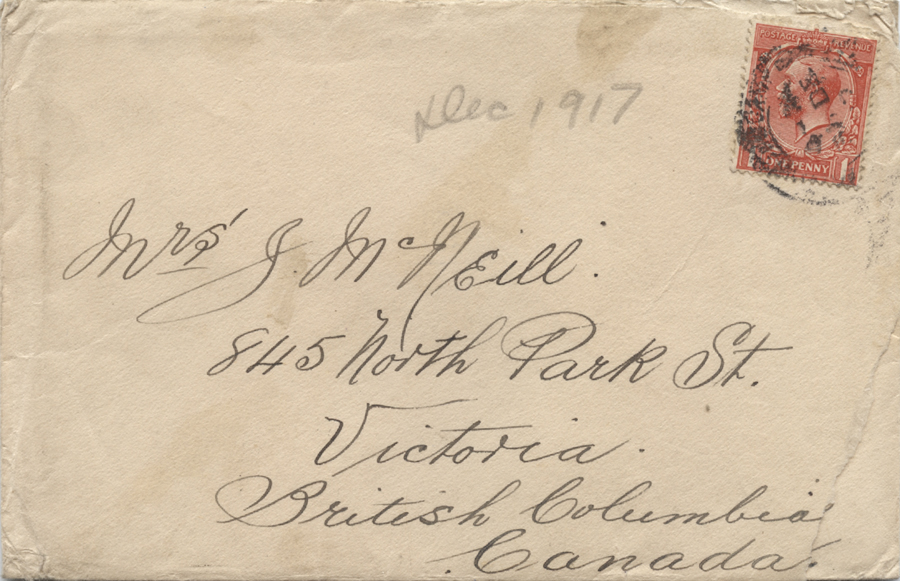 Dec 1917
POSTAGE REVENUE
ONE PENNY 1
Mrs J. McNeill.
845 North Park St.
Victoria.
British Columbia
Canada.